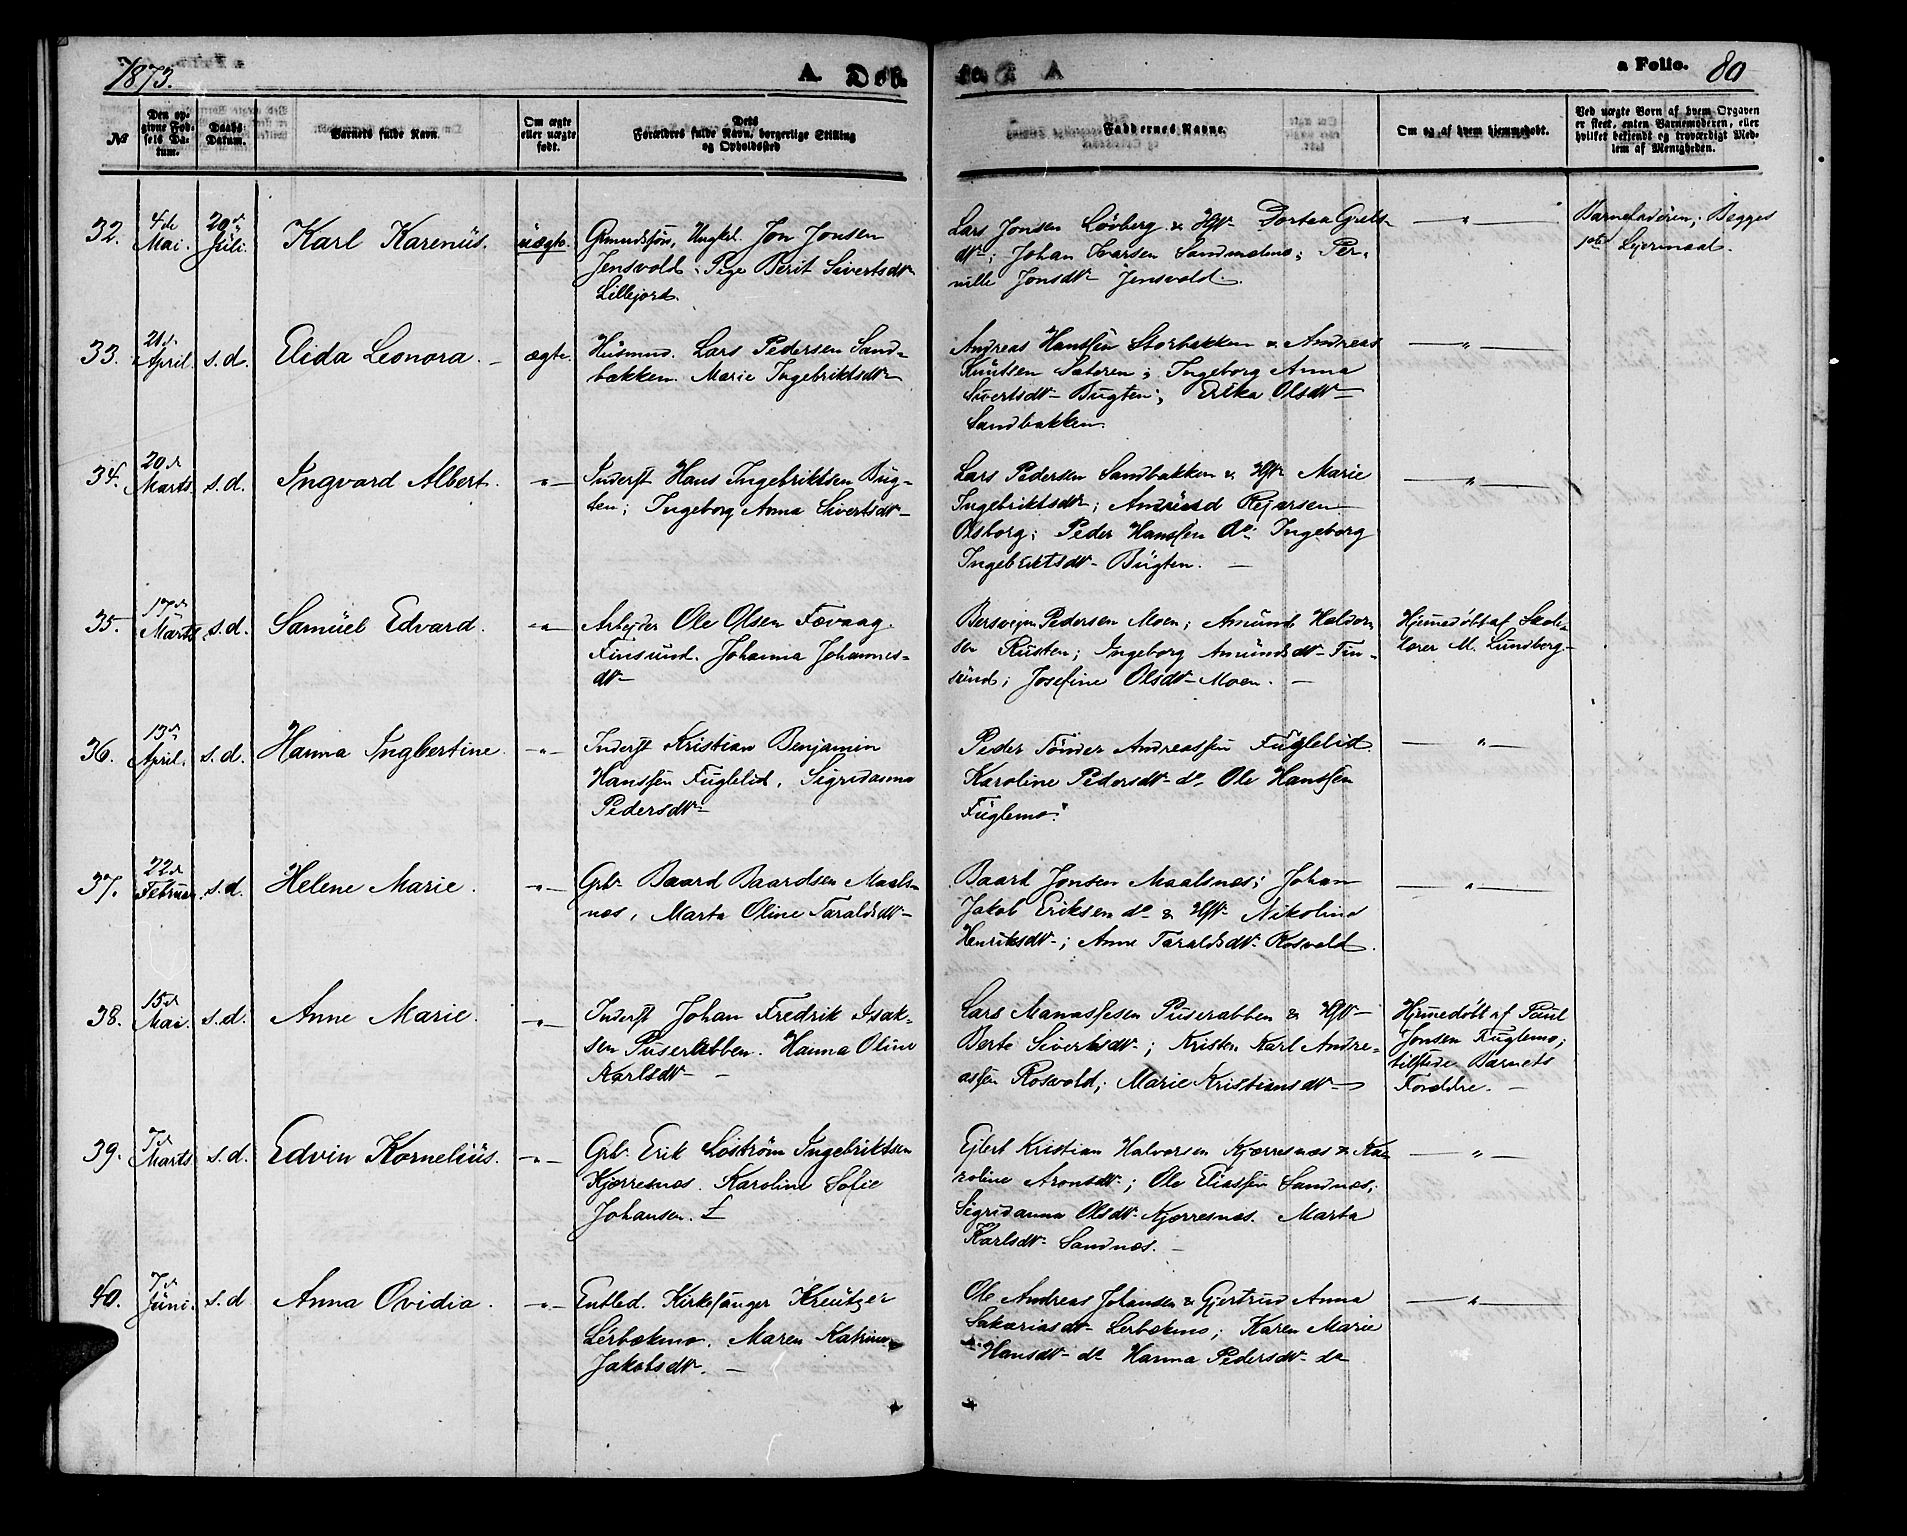 1873.
A. Døb
te. A
a Folio. 80
No
Den opgivne Fødsels Datum.
Daabs Datum.
Barnets fulde Navn.
Om ægte eller uægte født.
Dets Forældres fulde Navn, borgerlige Stilling og Opholdssted
Faddernes Navne.
Om og af hvem hjemmedøbt.
Ved uægte Børn af hvem Opgaven er skeet, enten Barnemoderen, eller hvilket bekjendt og troværdigt Medlem af Menigheden.
32. 4de Mai. 20d Juli. Karl Karenüs. uægte. Gmandssøn, Ungkl. Jon Jonsen
Jensvold. Pige Berit Sivertsdtr
Lillejord.
Lars Jonsen Løvberg & Hstr Dortea Grels-
dtr; Johan Larsen Sandmælmo; Per-
nille Jonsdtr Jensvold.
— " —
Barnefaderen; Begges
1ste Leiermaal.
33. 21d April. s.d. Elida Leonora. — ægte. Husmnd. Lars Pedersen Sand-
bakken. Marie Ingebriktsdtr
Andreas Hanssen Storbakken & Andreas
Knutsen Sæteren; Ingeborg Anna
Sivertsdtr Bugten; Erika Olsdtr
Sandbakken.
— " —
34. 20d Marts s.d. Ingvard Albert. — " — Inderst Hans Ingebriktsen Bug-
ten; Ingeborg Anna Sivertsdtr
Lars Pedersen Sandbakken & Hstr Marie
Ingebriktsdtr; Amünd Rejersen
Olsborg; Peder Hanssen do. Ingeborg
Ingebriktsdtr Bügten. —
— " —
35. 17d Marts s.d. Samüel Edvard. — " — Arbejder Ole Olsen Fævaag
Finsund. Johanna Johannes-
dtr
Bersvejn Pedersen Moen; Amünd Haldor-
sen Rusten; Ingeborg Amündsdtr Fin-
sund; Josefine Olsdtr Moen. —
Hjemedøbt af Skole-
lærer M. Lundberg
36. 13d April. s.d. Hanna Ingbertine. — " — Inderst Kristian Benjamin
Hanssen Fuglelid, Sigridanna
Pedersdtr
Peder Tønder Andreassen Fuglelid
Karoline Pedersdtr do Ole Hanssen
Füglemo.
— " —
37. 22d Februar. s.d. Helene Marie. — " — Grbr. Baard Baardsen Maals-
næs, Marta Oline Taraldsdtr
Baard Jonsen Maalsnæs; Johan
Jakob Eriksen do & Hstr Nikoline
Henriksdtr; Anne Taraldsdtr Rosvold.
— " —
38. 15d Mai. s.d. Anne Marie. — " — Inderst Johan Fredrik Isak-
sen Puserabben. Hanna Oline
Karlsdtr —
Lars Manassesen Puserabben & Hstr
Berte Sivertsdtr; Kristen Karl Andre-
assen Rosvold; Marie Kristiansdtr
Hjemedøbt af Paul
Jonsen Fuglemo;
tilstede Barnets
Forældre. —
39. 7d Marts s.d. Edvin Kornelius. — " — Grbr. Erik Sjøstrøm Ingebriktsen
Kjærresnæs. Karoline Sofie
Johansen.
Ejlert Kristian Halvorsen Kjærresnæs & Ka-
roline Aronsdtr; Ole Eliassen Sandnæs;
Sigridanna Olsdtr Kjærresnæs. Marta
Karlsdtr Sandnæs. —
— " —
40. 7d Juni. s.d Anna Ovidia. — " — Entled. Kirkesanger Kreutzer
Lerbækmo. Maren Katrine
Jakobsdtr. —
Ole Andreas Johansen & Gjertrud Anna
Sakariasdtr Lerbækmo; Karen Marie
Hansdtr do Hanna Pedersdtr do
— " —